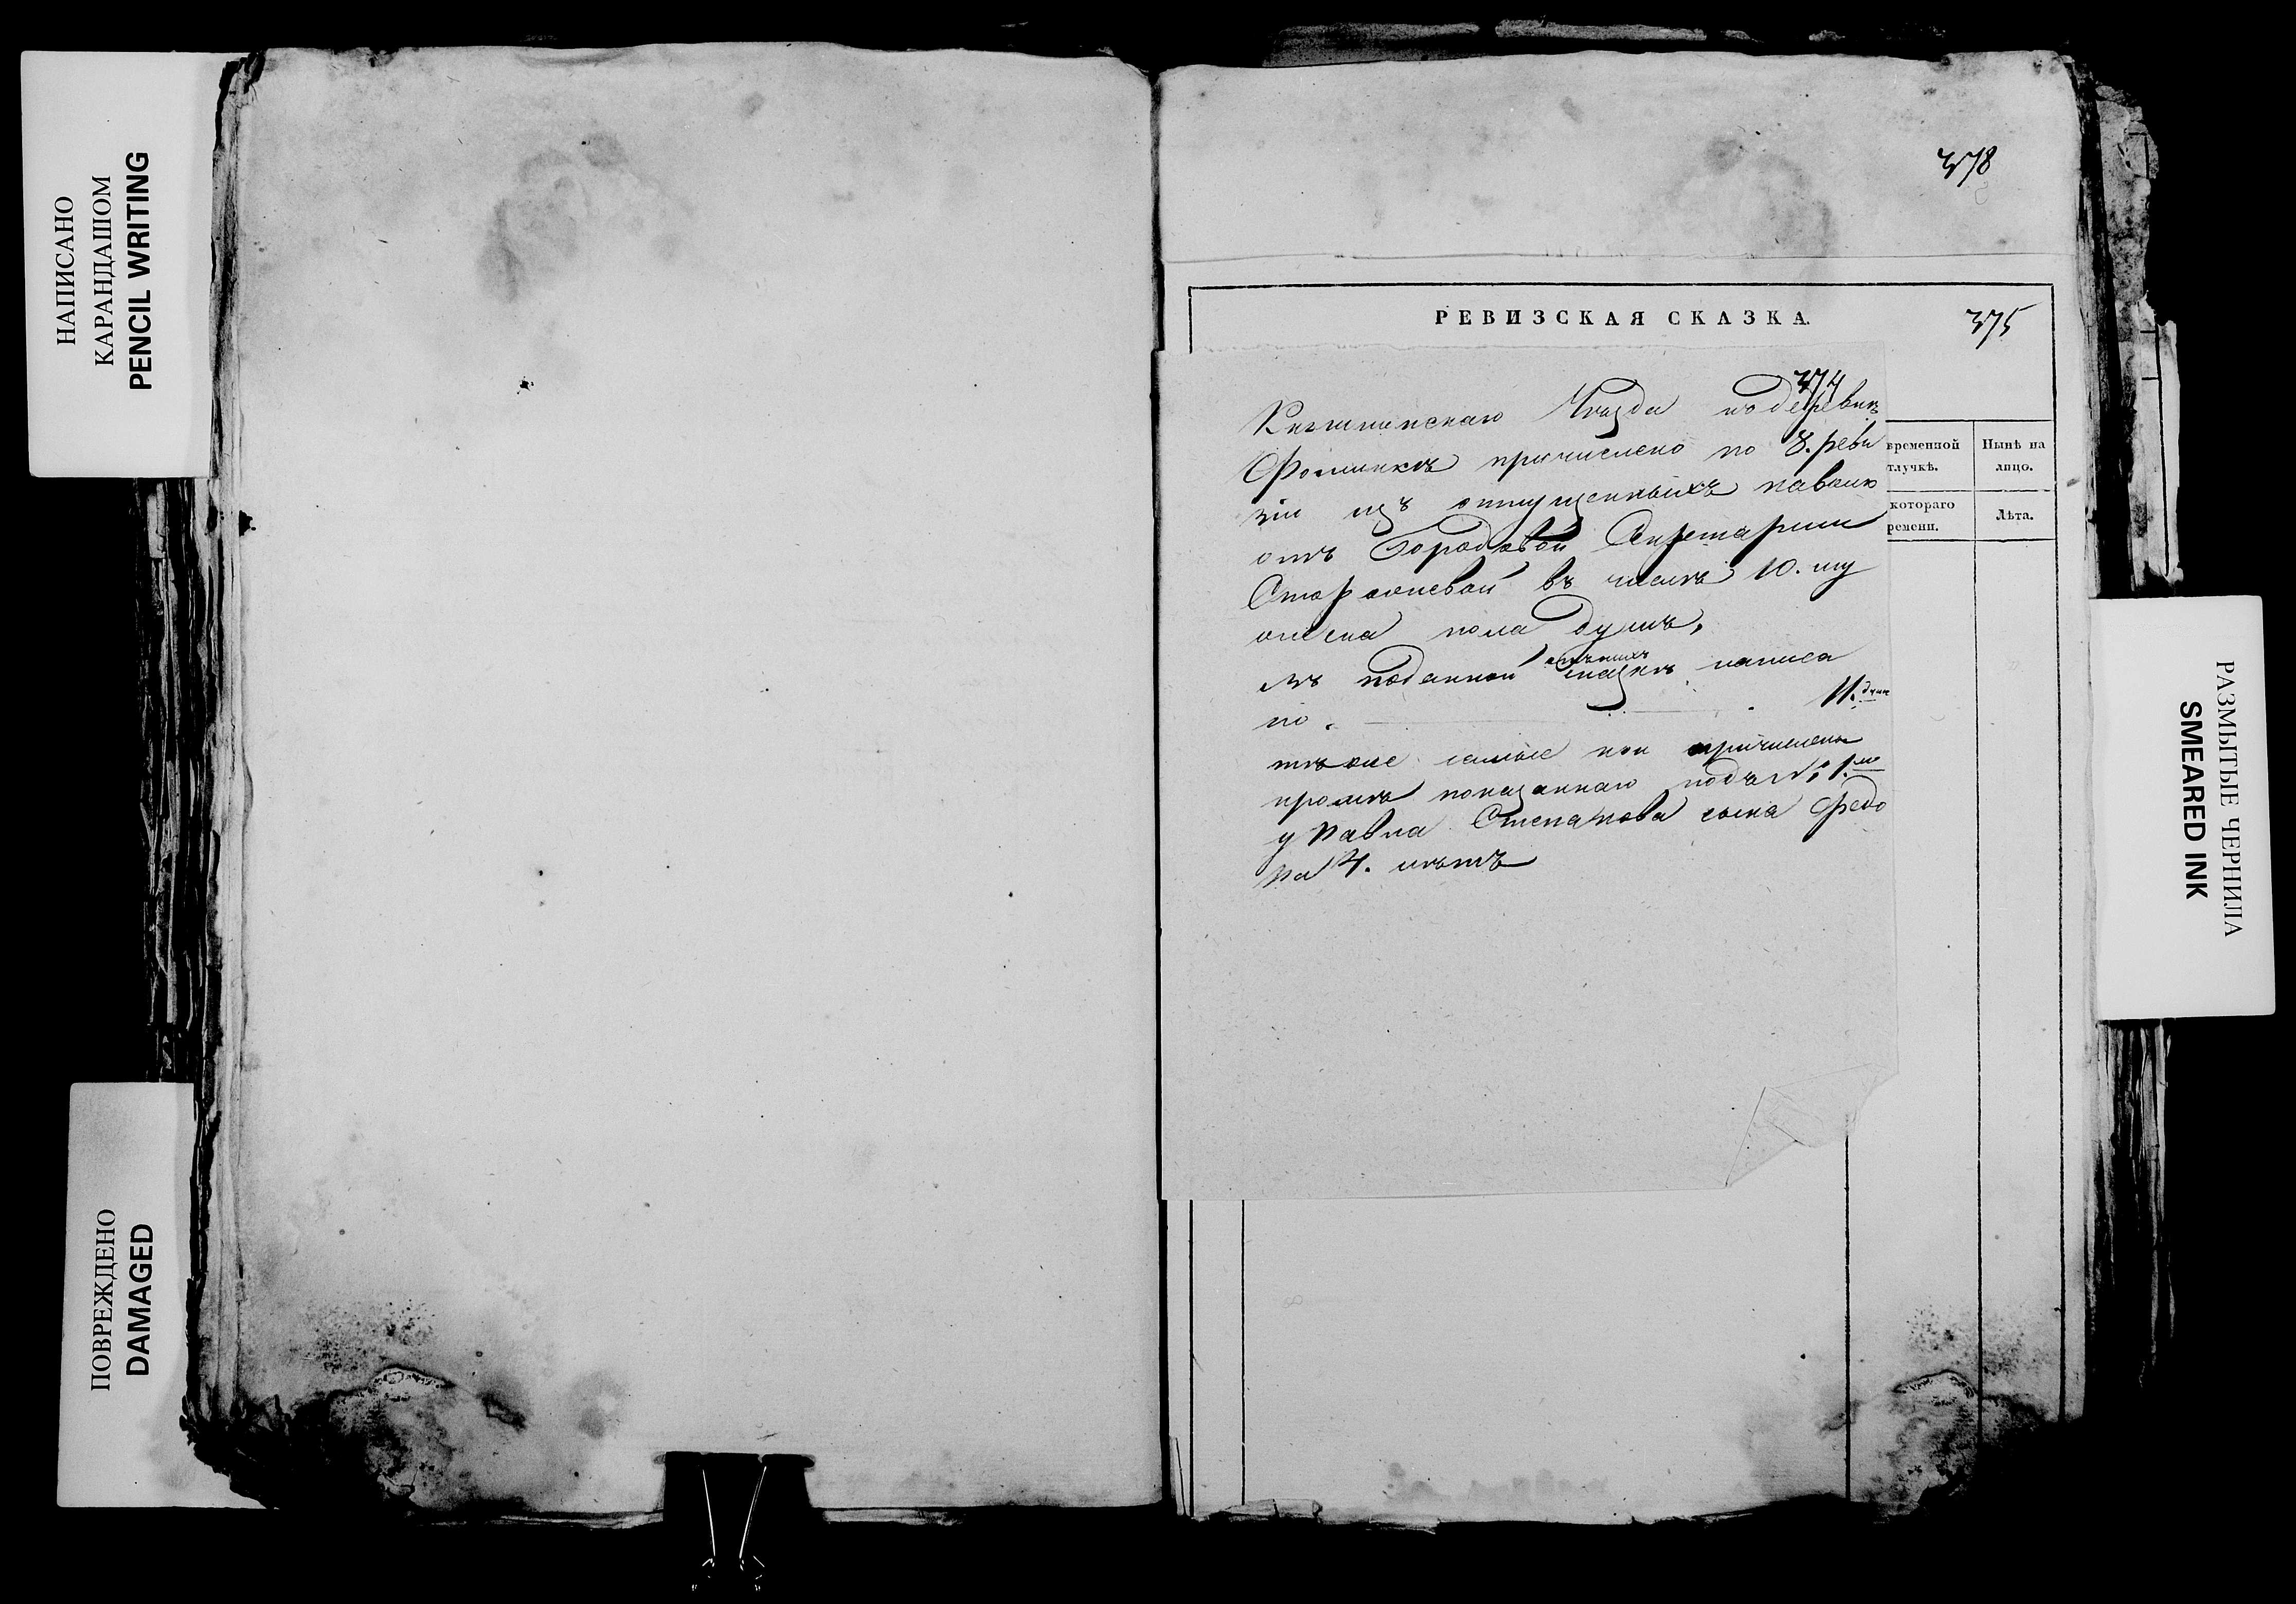 НАПИСАНО
КАРАНДАШОМ
PENCIL WRITING
ПОВРЕЖДЕНО
DAMAGED
378
РЕВИЗСКАЯ СКАЗКА.
375
374
уѣзда къ деревнѣ
Фоминкѣ причислено по 8. реви
зіи изъ отпущенныхъ на волю
отъ Городовой Секретарши
Сторожевой въ числѣ 10. му
жеска пола душъ,
въ поданной отъ нихъ сказкѣ написа
но. 11. душъ
тѣже самые кои причислены
кромѣ показаннаго подъ № 1.мъ
у Павла Степанова сына Федо
ра 4. лѣтъ
временной
тлучкѣ.
Нынѣ на
лицо.
котораго
ремени.
Лѣта.
РАЗМЫТЫЕ ЧЕРНИЛА
SMEARED INK